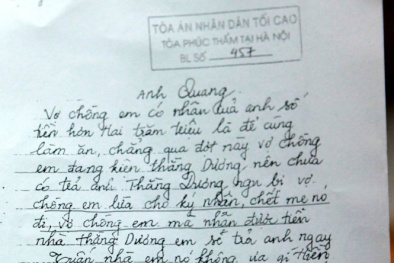 TÒA ÁN NHÂN DÂN TỐI CAO
TÒA PHÚC THẨM TẠI HÀ NỘI
BL SỐ 457
Anh Quang
Vợ chồng em có nhận của anh số
tiền hơn Hai trăm triệu là để cùng
làm ăn, chẳng qua đợt này vợ chồng
em đang kiện thằng Dương nên chưa
có trả anh. Thằng Dương ngu bị vợ
chồng em lừa cho ký nhận, chết mẹ nó
đi, vợ chồng em mà nhận được tiền
nhà thằng Dương em sẽ trả anh ngay
nhà em nó không ưa gì